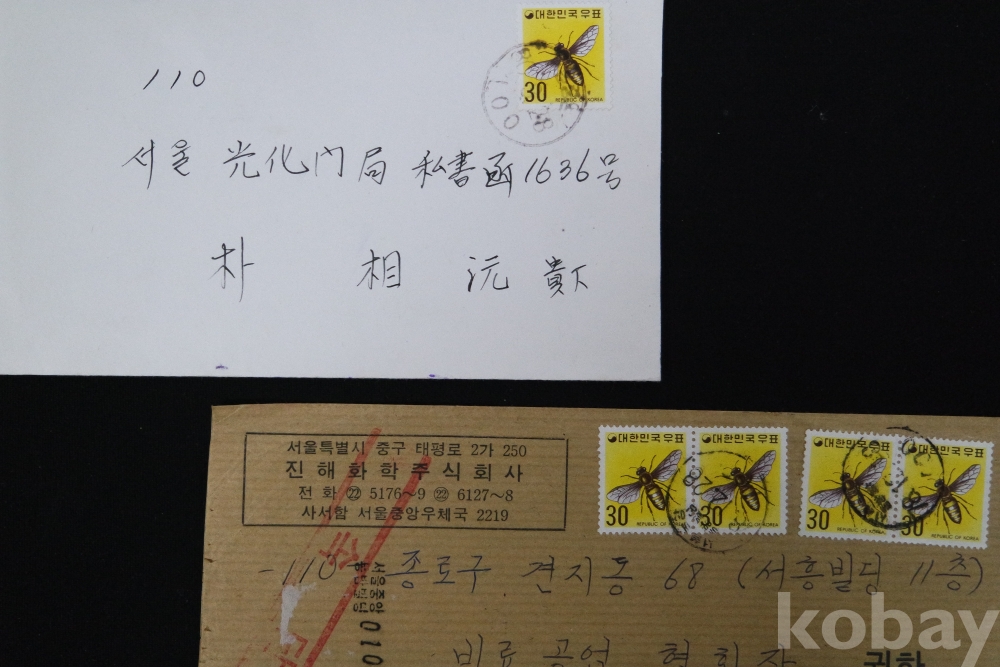 대한민국우표
30
REPUBLIC OF KOREA
110
서울 光化门局 私書函1636号
朴 相 沅 貴下
서울특별시 중구 태평로 2가 250
진해화학주식회사
전화 ㉒ 5176~9 ㉒ 6127~8
사서함 서울중앙우체국 2219
대한민국우표 대한민국우표 대한민국우표 대한민국우표
30 30 30 30
REPUBLIC OF KOREA REPUBLIC OF KOREA REPUBLIC OF KOREA REPUBLIC OF KOREA
110 종로구 견지동 68 (서흥빌딩 11층)
서울중앙
010
비료공업 협회장 귀하
kobay